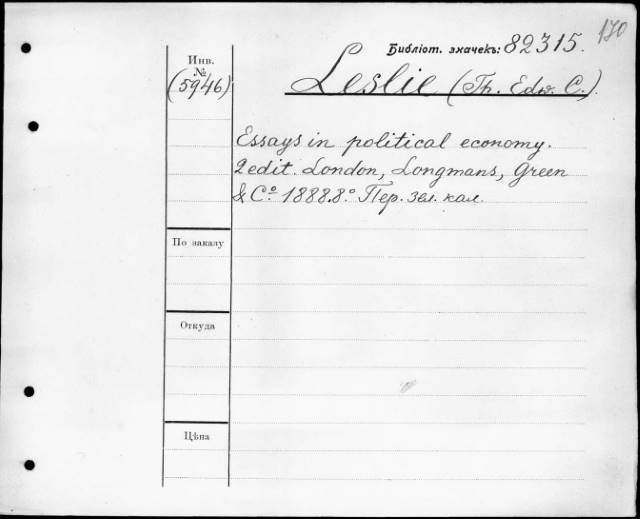 170
Библіот. значекъ: 82315.
Инв.
№
(5946)
Leslie (Th. Edw. C.).
Essays in political economy.
2 edit. London, Longmans, Green
& Cº 1888. 8º. Пер. зел. кал.
По заказу
Откуда
Цѣна